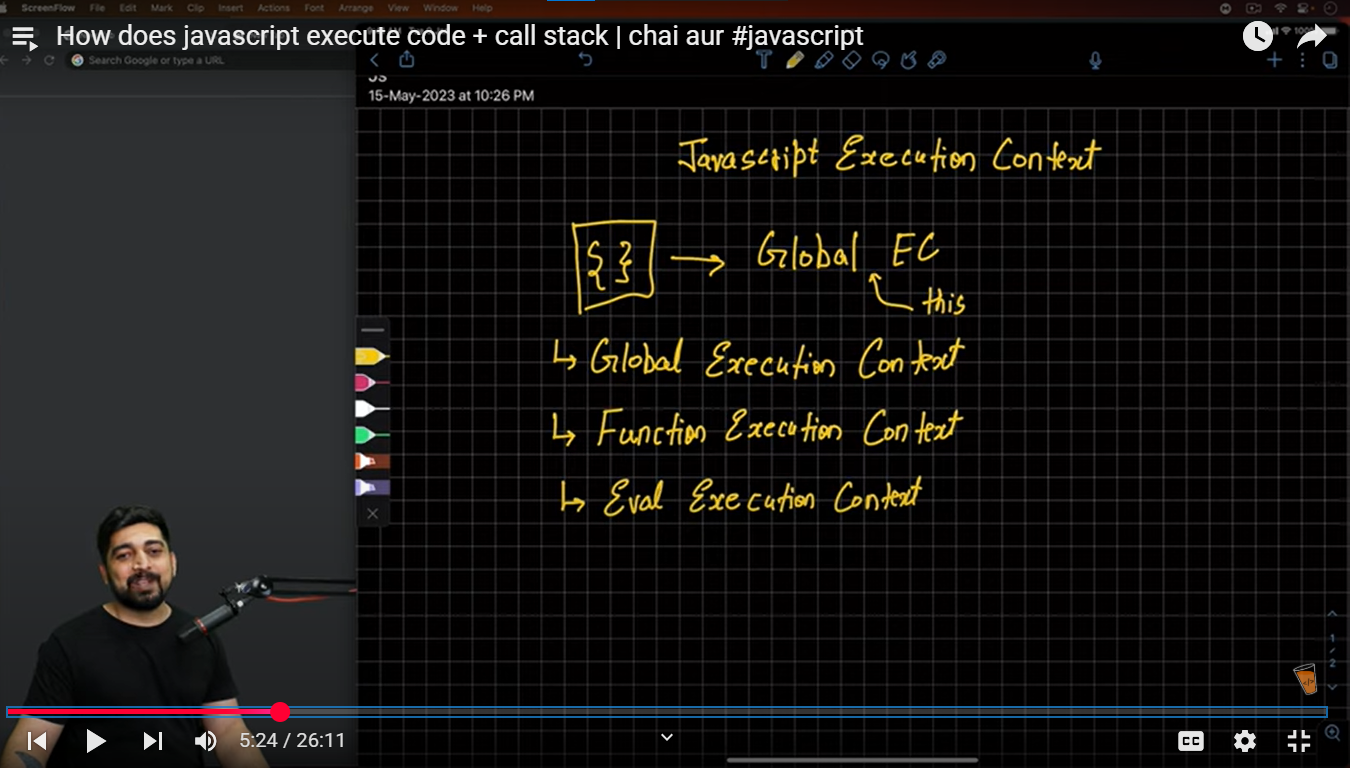 ScreenFlow File Edit Mark Clip Insert Actions Font Arrange View Window Help
How does javascript execute code + call stack | chai aur #javascript
Search Google or type a URL
JS
15-May-2023 at 10:26 PM
Javascript Execution Context
{ } → Global EC
this
↳ Global Execution Context
↳ Function Execution Context
↳ Eval Execution Context
1
/
2
</>
5:24 / 26:11
CC